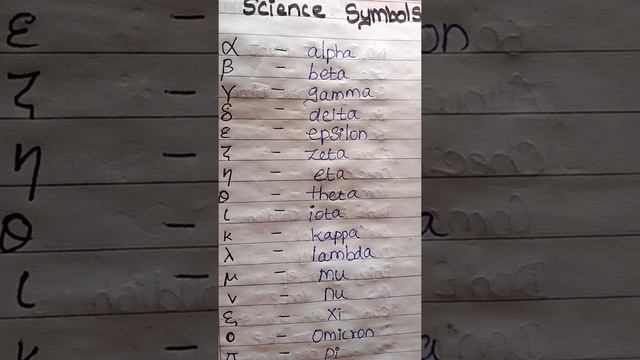 Science Symbols
α - alpha
β - beta
γ - gamma
δ - delta
ε - epsilon
ζ - zeta
η - eta
θ - theta
ι - iota
κ - kappa
λ - lambda
μ - mu
ν - nu
ξ - xi
ο - omicron
π - pi